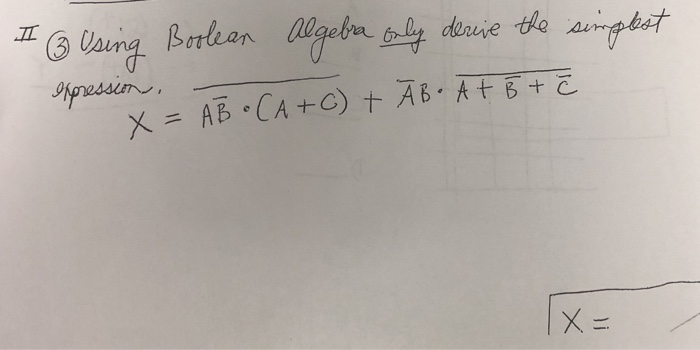 II ③ Using Boolean Algebra only derive the simplest
expression.
X = \overline{A\overline{B} · (A + C)} + \overline{A}B · \overline{A + \overline{B} + \overline{C}}
X =